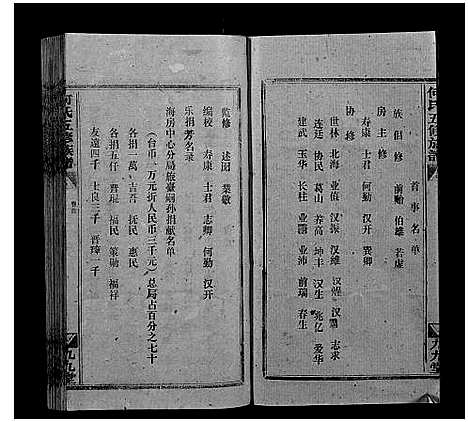 何氏五修族譜
首事名单
族倡修 前贻 伯雄 若虚
房主修
寿康 士君 何勤 汉开 巽卿
协修
世林 北海 业值 汉振 汉雄 汉煋 汉翥 志求
连廷 协民 葛山 养高 坤丰 汉生 兆亿 爱华
建武 玉华 长柱 业醫 业沛 前瑞 春生
九九堂
监修 述图 业敬
编校 寿康 士君 志卿 何勤 汉开
乐捐芳名录
海房中心分局旅臺嗣孙捐献名单
(台币一万元折人民币三千元)总局占百分之七十
各捐一万 吉吾 执民 惠民
各捐五仟 晋琨 福民 策勋 福祥
友遠四千 士良二千 晋璋一千
何氏五修族譜
卷首
九九堂